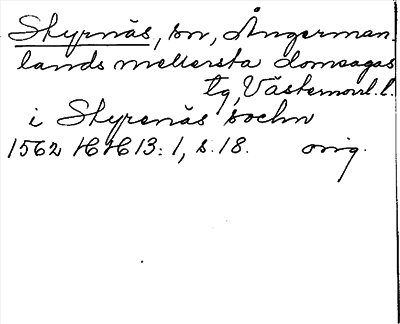 Styrnäs, sn, Ångerman-
lands mellersta domsagas
tg, Västernorrl. l.
i Styrenäs sochn
1562 HH 13: 1, s. 18. orig.